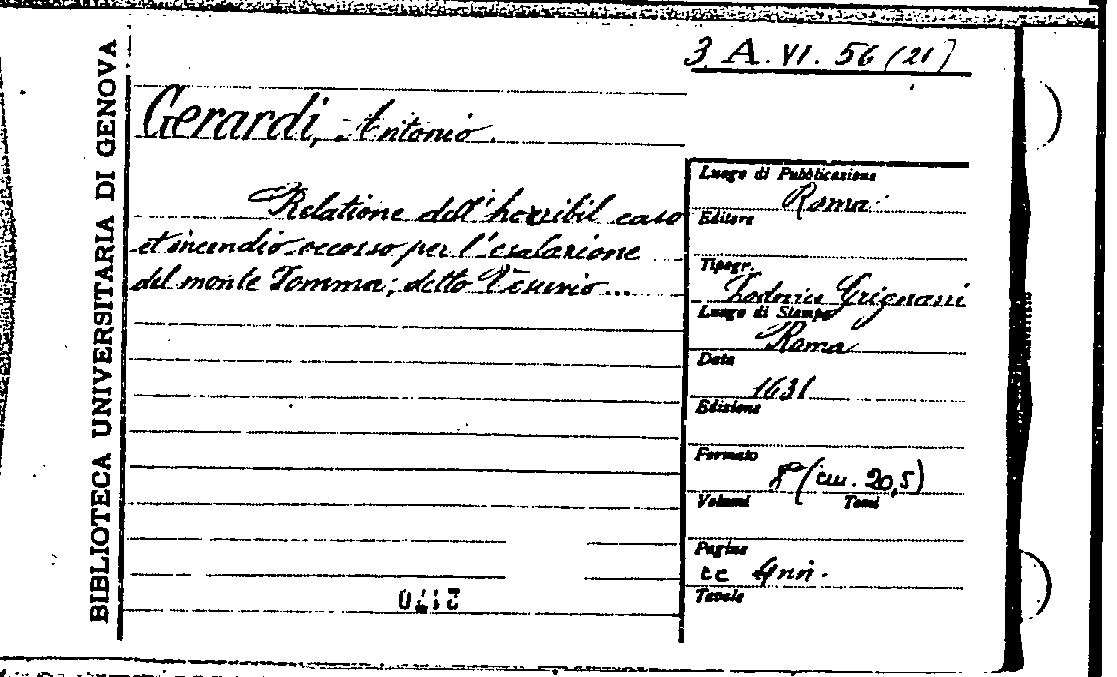 BIBLIOTECA UNIVERSITARIA DI GENOVA
3 A. VI. 56 (21)
Gerardi, Antonio.
Relatione dell'horribil caso
et incendio occorso per l'esalazione
del monte Somma, detto Vesuvio...
Luogo di Pubblicazione
Roma
Editore
Tipogr.
Lodovico Grignani
Luogo di Stampa
Roma
Data
1631
Edizione
Formato
8° (cm. 20,5)
Volumi Tomi
Pagine
cc 4nn.
Tavole